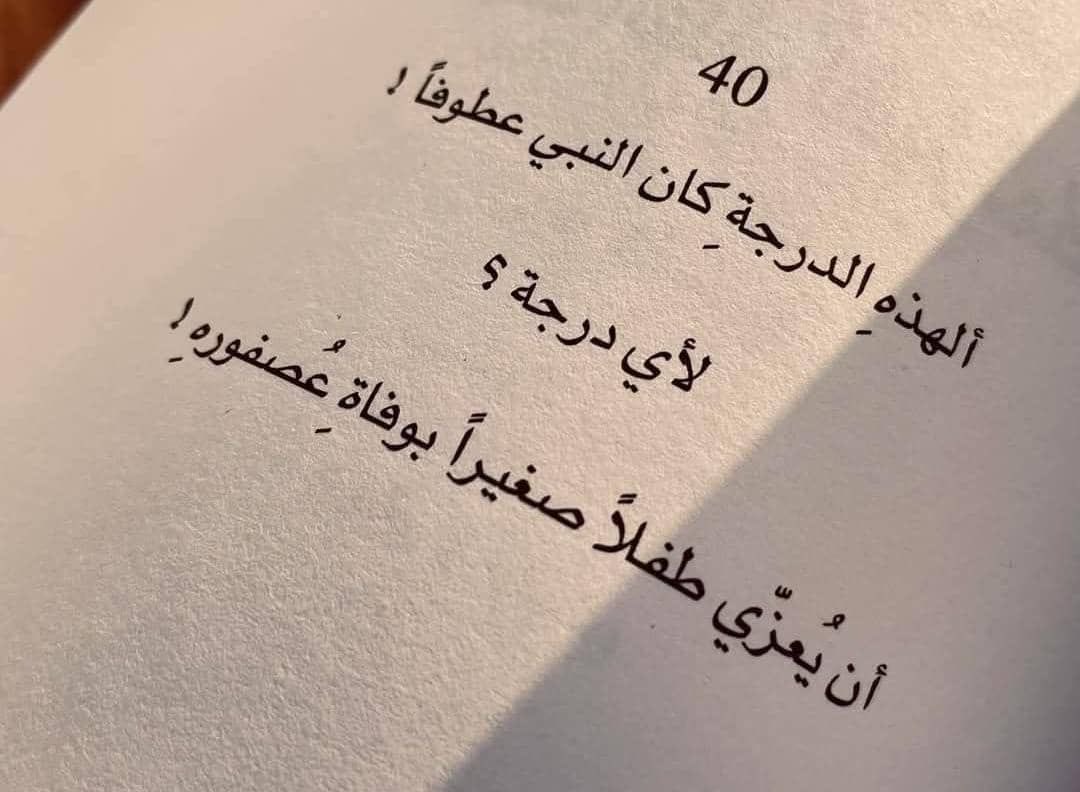 40
ألهذهِ الدرجةِ كان النبي عطوفاً !
لأي درجة ؟
أن يُعزّي طفلاً صغيراً بوفاةِ عُصفورهِ !